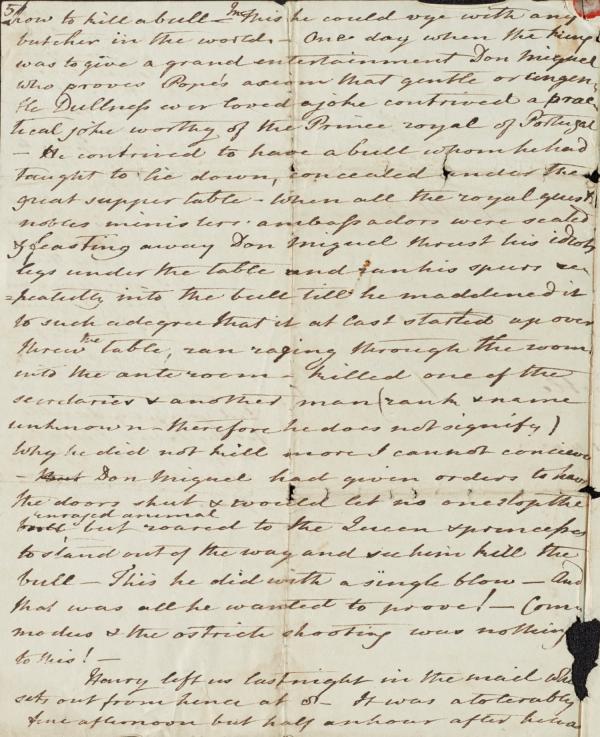 5
how to kill a bull - In this he could vye with any
butcher in the world. One day when the King
was to give a grand entertainment Don Miguel
who proves Pope's axiom that gentle or
Dullness ever loved a joke contrived a prac
tical joke worthy of the Prince royal of Portugal
- He contrived to have a bull whom he had
taught to lie down, concealed under the
great supper table - when all the royal guests
nobles ministers ambassadors were seated
& feasting away Don Miguel thrust his
legs under the table and ran his spurs re
=peatedly into the bull till he maddened it
to such a degree that it at last started up over
threw the table, ran raging through the room
into the ante room - killed one of the
secretaries & another man (rank & name
unknown - therefore he does not signify)
Why he did not kill more I cannot conceive
- Don Miguel had given orders to have
the doors shut & would let no one stop the
enraged animal
but roared to the Queen & princesses
to stand out of the way and see him kill the
bull - This he did with a single blow - And
that was all he wanted to prove! - Com
modus & the ostrich shooting was nothing
to this! -
Harry left us last night in the mail
sets out from hence at 5 - It was a tolerably
fine afternoon but half an hour after he was